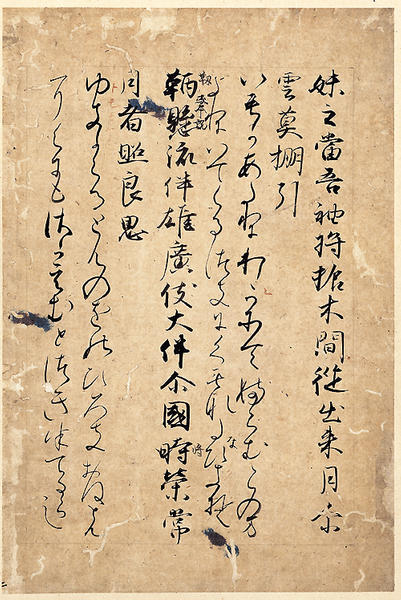 妹之當吾袖将振木間従出来月尓
雲莫棚引
いもかあたりわかそてふらむこのま
よりいてくるつきにくもなたなひき
靹懸流伴雄廣伎大伴尓國時榮常
月者照良思
とものをのひろきおほ
さかえむとつきはてる